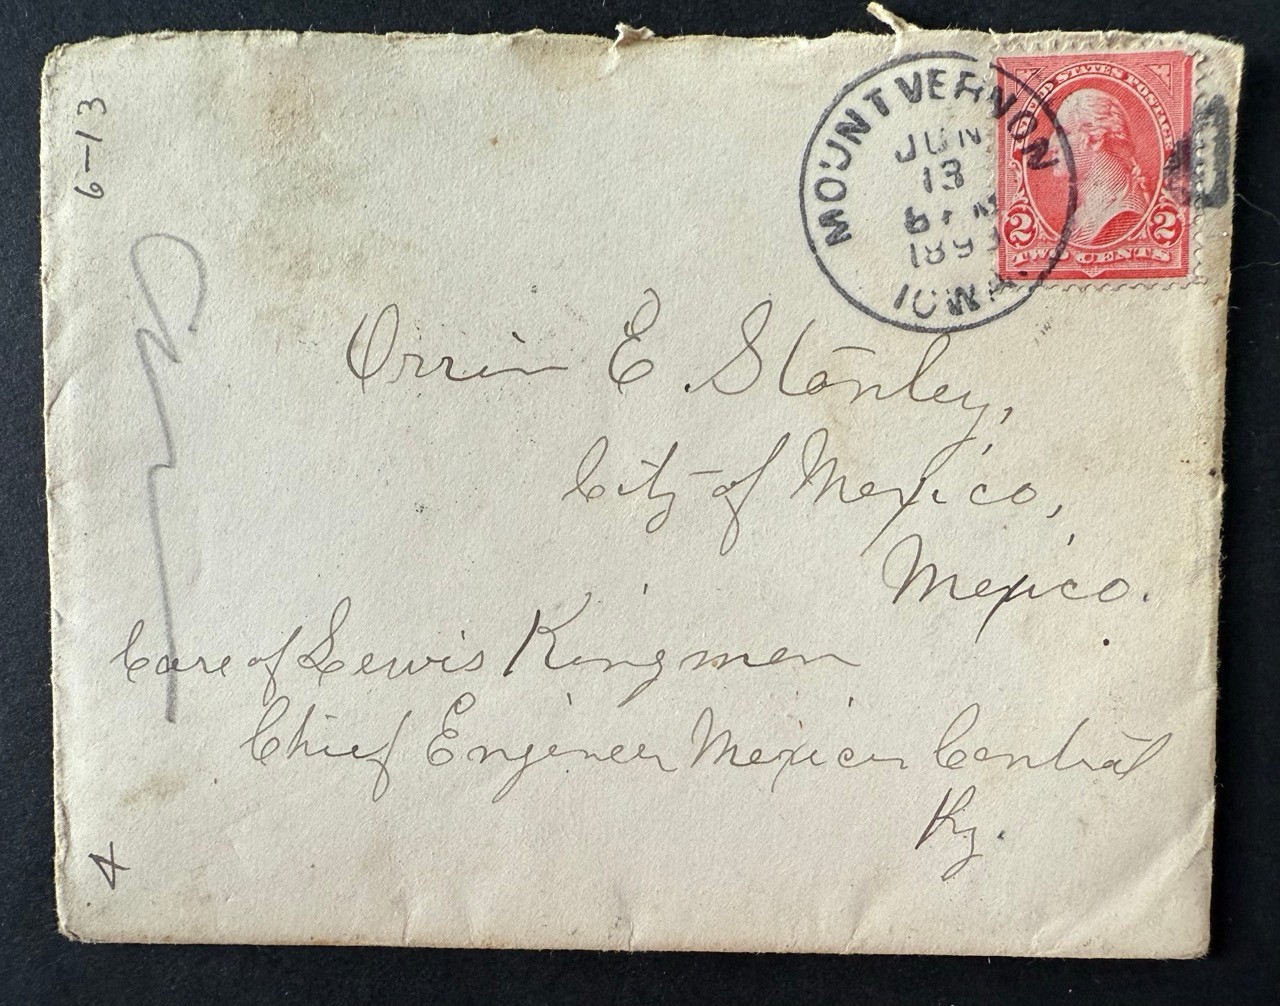 6-13
MOUNT VERNON
JUN
13
1893
IOWA.
UNITED STATES POSTAGE
2 2
TWO CENTS
Orrin E. Stanley,
City of Mexico,
Mexico.
Care of Lewis Kingman
Chief Engineer Mexican Central
Ry.